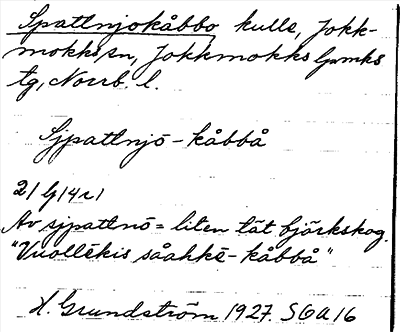 Spattnjokåbbo kulle, Jokk-
mokks sn, Jokkmokks lpmks
tg, Norrb. l.
Sjpattnjō - kåbbå
2/ lj/4r/
Av sjpattnō = liten tät björkskog.
"Vuollēkis såahkē-kåbbå"
H. Grundström 1927. SOA 16